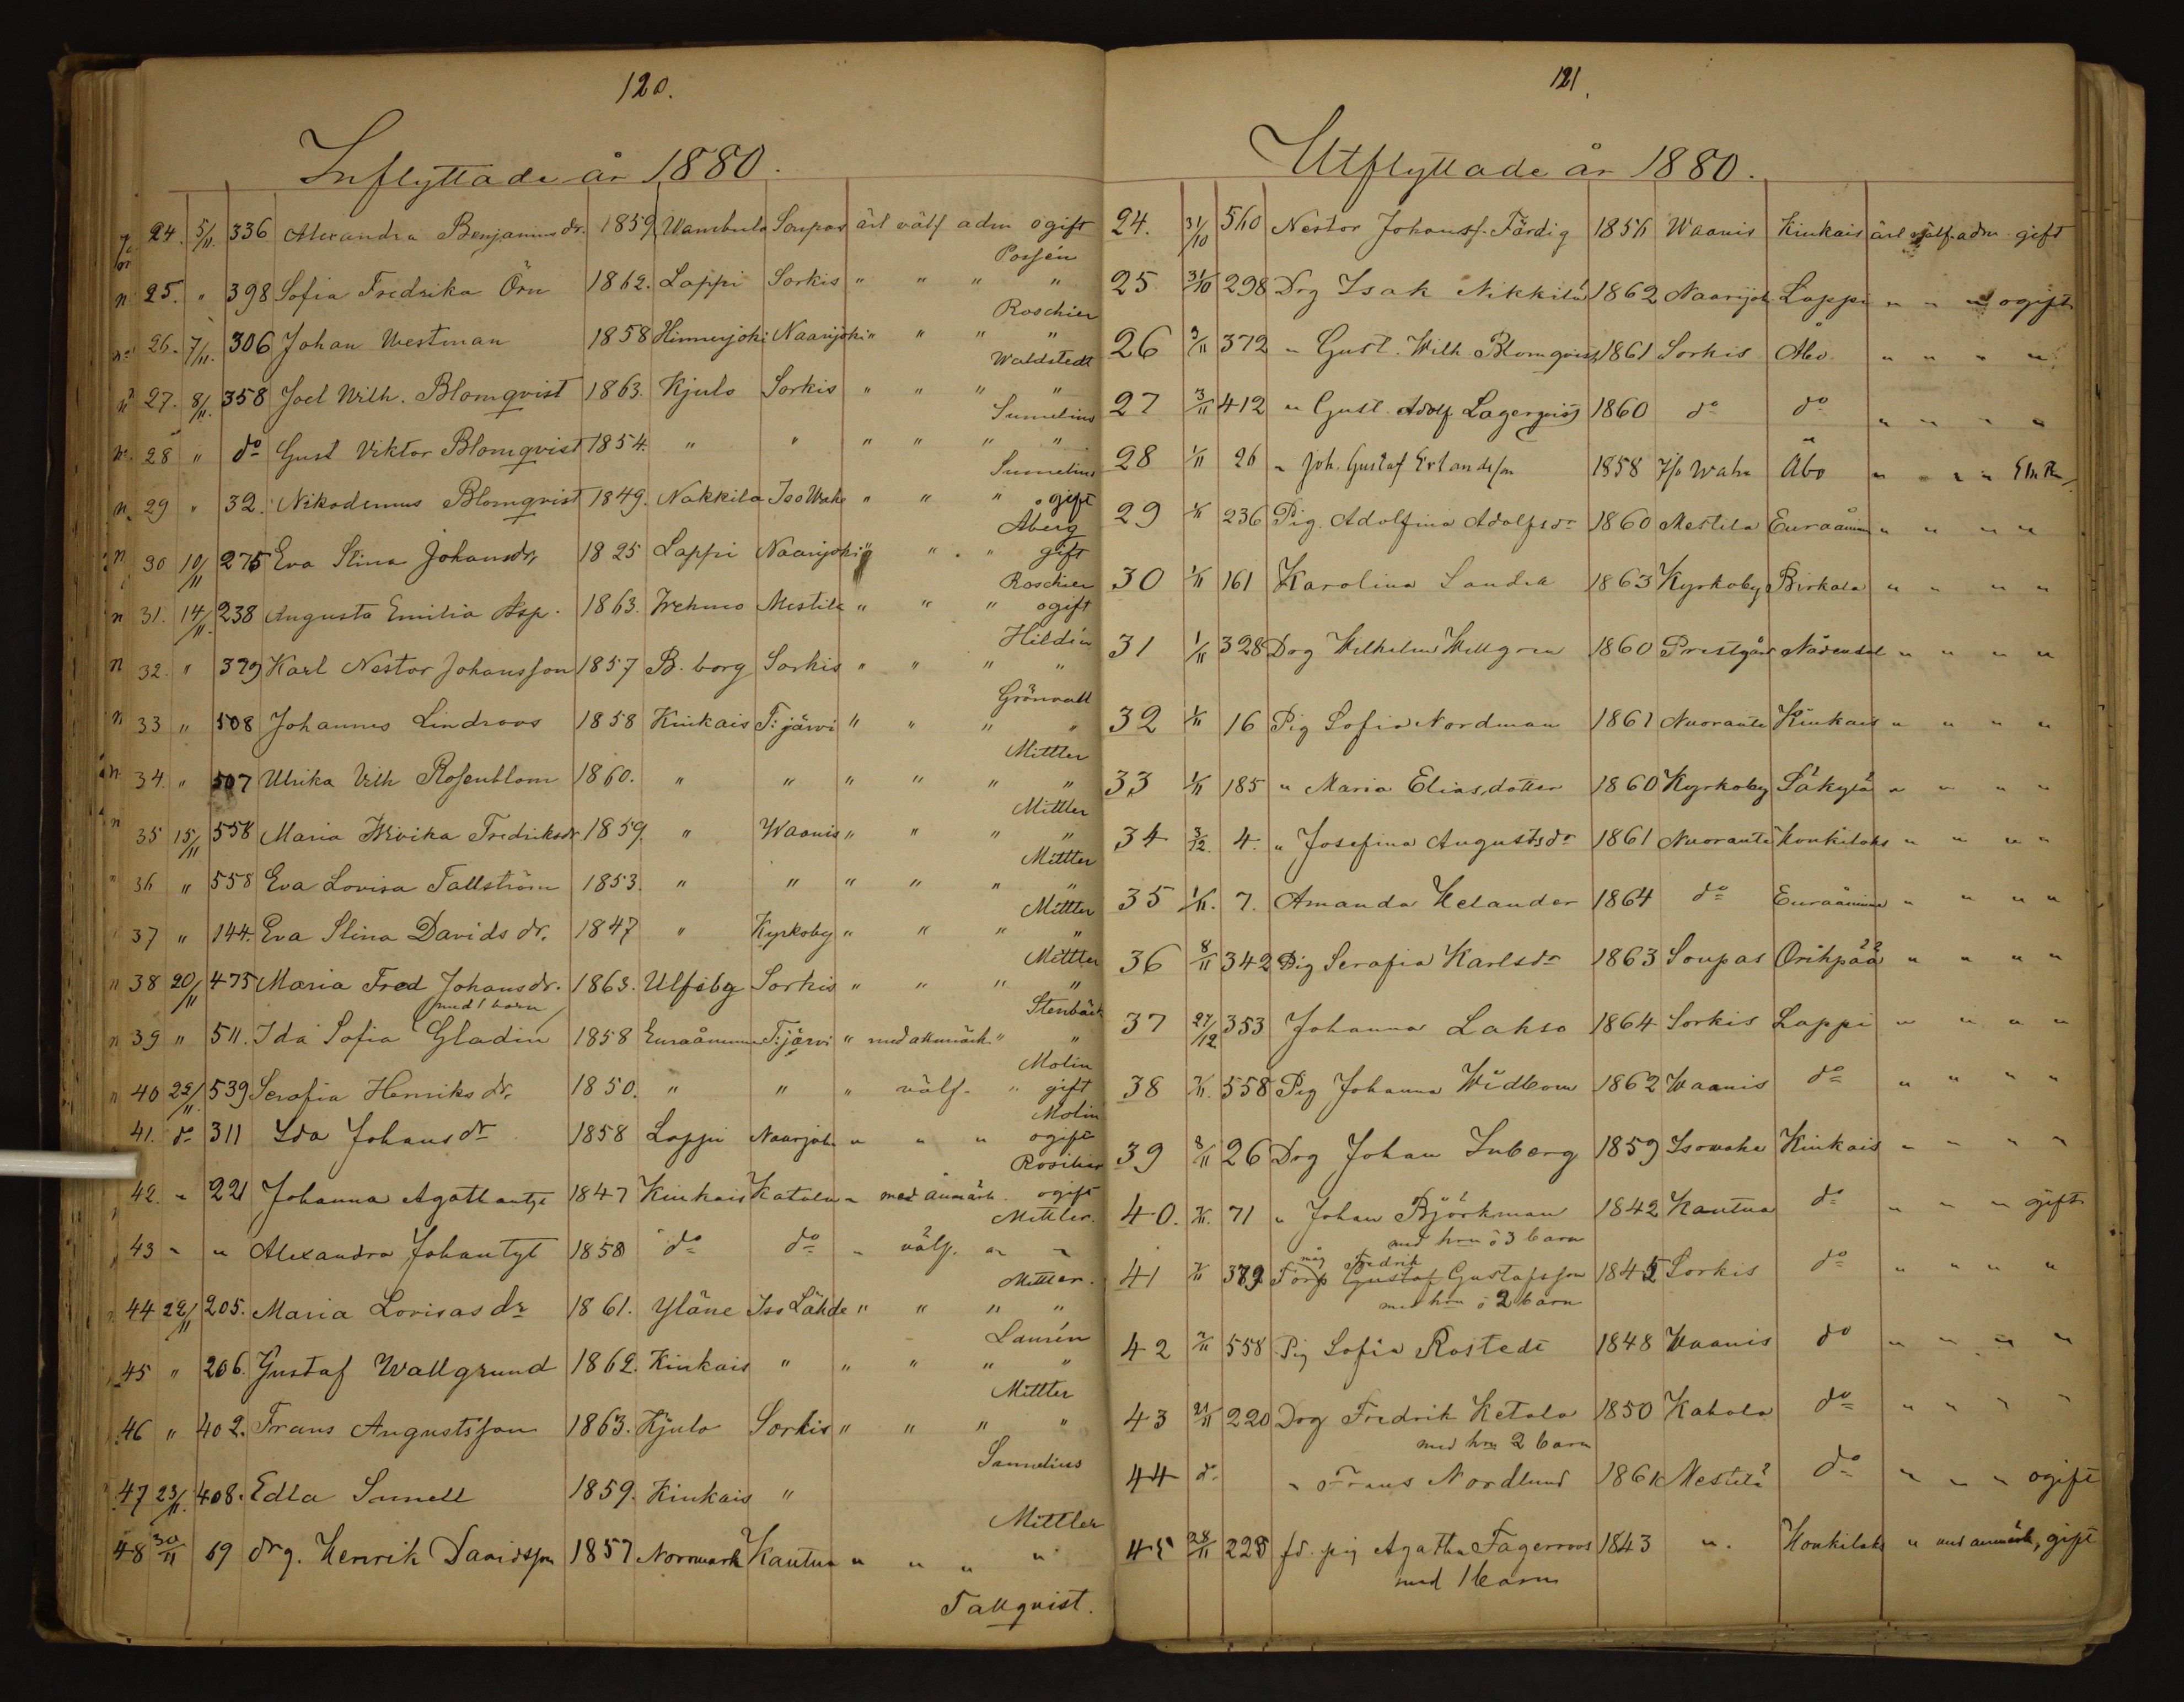 120.
Inflyttade år 1880.
24. 5/11. 336 Alexandra Benjaminsdr. 1859 Wambula Soupas ärl välf adm ogift
Possén
n 25. " 398 Sofia Fredrika Örn 1862. Lappi Sorkis " " " "
Roschier
26. 7/11. 306 Johan Westman 1858 Hinnerjoki Naarijoki " " " "
Waldstedt
27. 8/11. 358 Joel Wilh. Blomqvist 1863. Kjulo Sorkis " " " "
Sumelius
28 " do Gust Viktor Blomqvist 1854. " " " " " "
Sumelius
n 29 " 32. Nikodemus Blomqvist 1849. Nakkila Iso Wahe " " " ogift
Åberg
n 30 10/11 275 Eva Stina Johansdr, 1825 Lappi Naarijoki " " " gift
Roschier
n 31. 14/11. 238 Augusta Emilia Asp. 1863. Wehmo Mestile " " " ogift
Hildén
n 32. " 379 Karl Nestor Johansson 1857 B. borg Sorkis " " " "
Grönvall
n 33 " 508 Johannes Lindroos 1858 Kiukais T:järvi " " " "
Mittler
n 34. " 507 Ulrika Vilh Rosenblom 1860. " " " " " "
Mittler
n 35 15/11 558 Maria Wivika Fredriksdr 1859. " Waanis " " " "
Mittler
" 36 " 558 Eva Lovisa Tallström 1853. " " " " " "
Mittler
37 " 144. Eva Stina Davids dr. 1847 " Kyrkoby " " " "
Mittler
n 38 20/11 475 Maria Fred Johansdr. 1863. Ulfsby Sorkis " " " "
med 1 barn Stenbäck
n 39 " 511. Ida Sofia Gladin 1858 Euraåminne T:järvi " med anmärk. " "
Molin
n 40 22/11. 539 Serafia Henriks dr. 1850. " " " välf. " gift
Molin
41. do 311 Ida Johans dr 1858 Lappi Naarjoki " " " ogift
Roschier
42. " 221 Johanna Agatha 1847 Kiukais Katola " med anmärk. ogift
Mittler.
43 " " Alexandra Johantyt 1858 do do " välf. " "
Mittler.
44 22/11 205. Maria Lovisas dr 1861. Yläne Iso Lähde " " " "
Laurén
45 " 206. Gustaf Wallgrund 1862. Kiukais " " " " "
Mittler
46 " 402. Frans Augustsson 1863. Kjulo Sorkis " " " "
Sumelius
47 23/11. 408. Edla Sunell 1859. Kiukais "
Mittler
48 30/11 69 drg. Henrik Davidsson 1857 Norrmark Kautua " " " "
Tallqvist.
121.
Utflyttade år 1880.
24. 31/10 560 Nestor Johanss. Färdig 1856 Waanis Kiukais ärl välf. adm. gift
25 31/10 298 Drg Isak Nikkilä 1862 Naarijok Lappi " " " ogift
26 3/11 372 " Gust. Wilh Blomqvist 1861 Sorkis Åbo " " " "
27 3/11 412 " Gust. Adolf Lagerqvist 1860 do do " " " "
28 1/11 26 " Joh. Gustaf Erlandsson 1858 I/o Wahe Åbo " " " "
29 1/11 236 Pig. Adolfina Adolfsdr 1860 Mestila Euraåmin " " " "
30 1/11 161 Karolina Sandra 1863 Kyrkoby Birkala " " " "
31 1/11 328 Drg Wilhelm Wellgren 1860 Prestgård Nådendal " " " "
32 1/11 16 Pig Sofia Nordman 1861 Nuorante Kiukais " " " "
33 1/11 185 " Maria Eliasdotter 1860 Kyrkoby Säkylä " " " "
34 3/12. 4. " Josefina Augustsdr 1861 Nuorante Honkilaks " " " "
35 1/11. 7. Amanda Helander 1864 do Euraåminne " " " "
36 8/11 342 Pig Serafia Karlsdr 1863 Soupas Orihpää " " " "
37 27/12 353 Johanna Lakso 1864 Sorkis Lappi " " " "
38 7/11. 558 Pig Johanna Widbom 1862 Waanis do " " " "
39 8/11 26 Drg Johan Inberg 1859 Isowaha Kiukais " " " "
40. 7/11. 71 " Johan Björkman 1842 Kautua do " " " gift
med hru o 3 barn
41 7/11 389 Torp måg Fredrik Gustaf Gustafsson 1845 Sorkis do " " " "
med hru o 2 barn
42 7/11 558 Pig Sofia Rostedt 1848 Waanis do " " " "
43 21/11 220 Drg Fredrik Ketola 1850 Kahala do " " " "
med hru 2 barn
44 do " Frans Nordlund 1861 Mestilä do " " " ogift
45 28/11 228 fd. pig Agatha Fagerroos 1843 ". Honkilaks " med anmärk, gift
med 1 barn